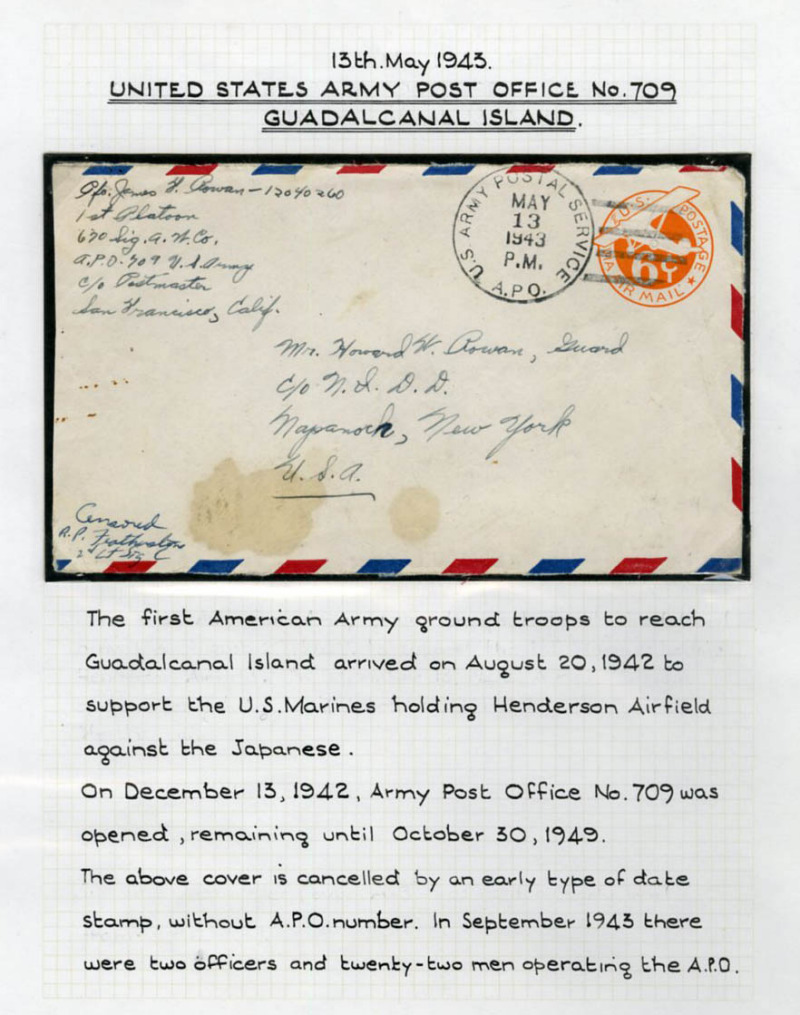 13th. May 1943.
UNITED STATES ARMY POST OFFICE No. 709
GUADALCANAL ISLAND.
Pfc. James H. Rowan - 12040260
1st Platoon
670 Sig. A. W. Co.
A.P.O. 709 U.S. Army
c/o Postmaster
San Francisco, Calif.
U.S. ARMY POSTAL SERVICE
MAY
13
1943
P.M.
A.P.O.
U.S. POSTAGE
6¢
AIR MAIL
Mr. Howard W. Rowan, Guard
c/o N. I. D. D.
Napanoch, New York
U.S.A.
Censored
R.P.
2nd Lt Sig C
The first American Army ground troops to reach
Guadalcanal Island arrived on August 20, 1942 to
support the U.S. Marines holding Henderson Airfield
against the Japanese.
On December 13, 1942, Army Post Office No. 709 was
opened, remaining until October 30, 1949.
The above cover is cancelled by an early type of date
stamp, without A.P.O. number. In September 1943 there
were two officers and twenty-two men operating the A.P.O.